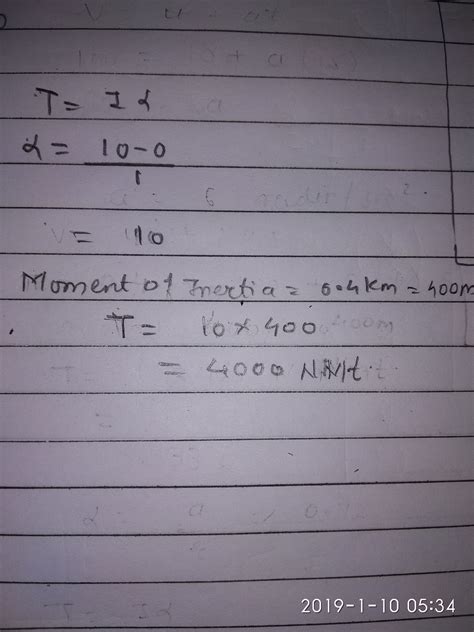 T = I α
α = 10-0
1
V = 10
Moment of Inertia = 0.4km = 400m
T = 10 × 400
= 4000
2019-1-10 05:34